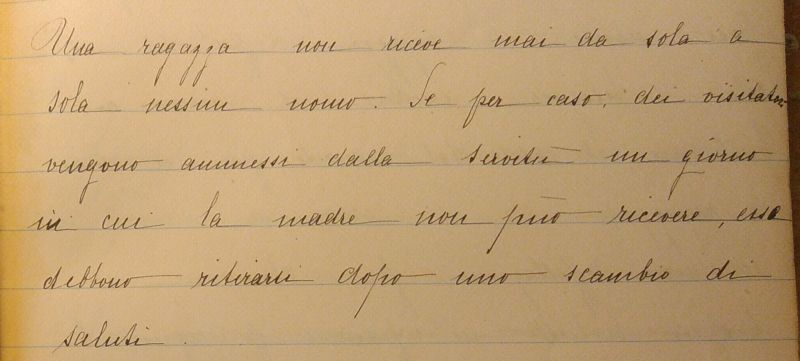 Una ragazza non riceve mai da sola a
sola nessun uomo. Se per caso, dei visitatori
vengono ammessi dalla servitù un giorno
in cui la madre non può ricevere, esse
debbono ritirarsi dopo uno scambio di
saluti.